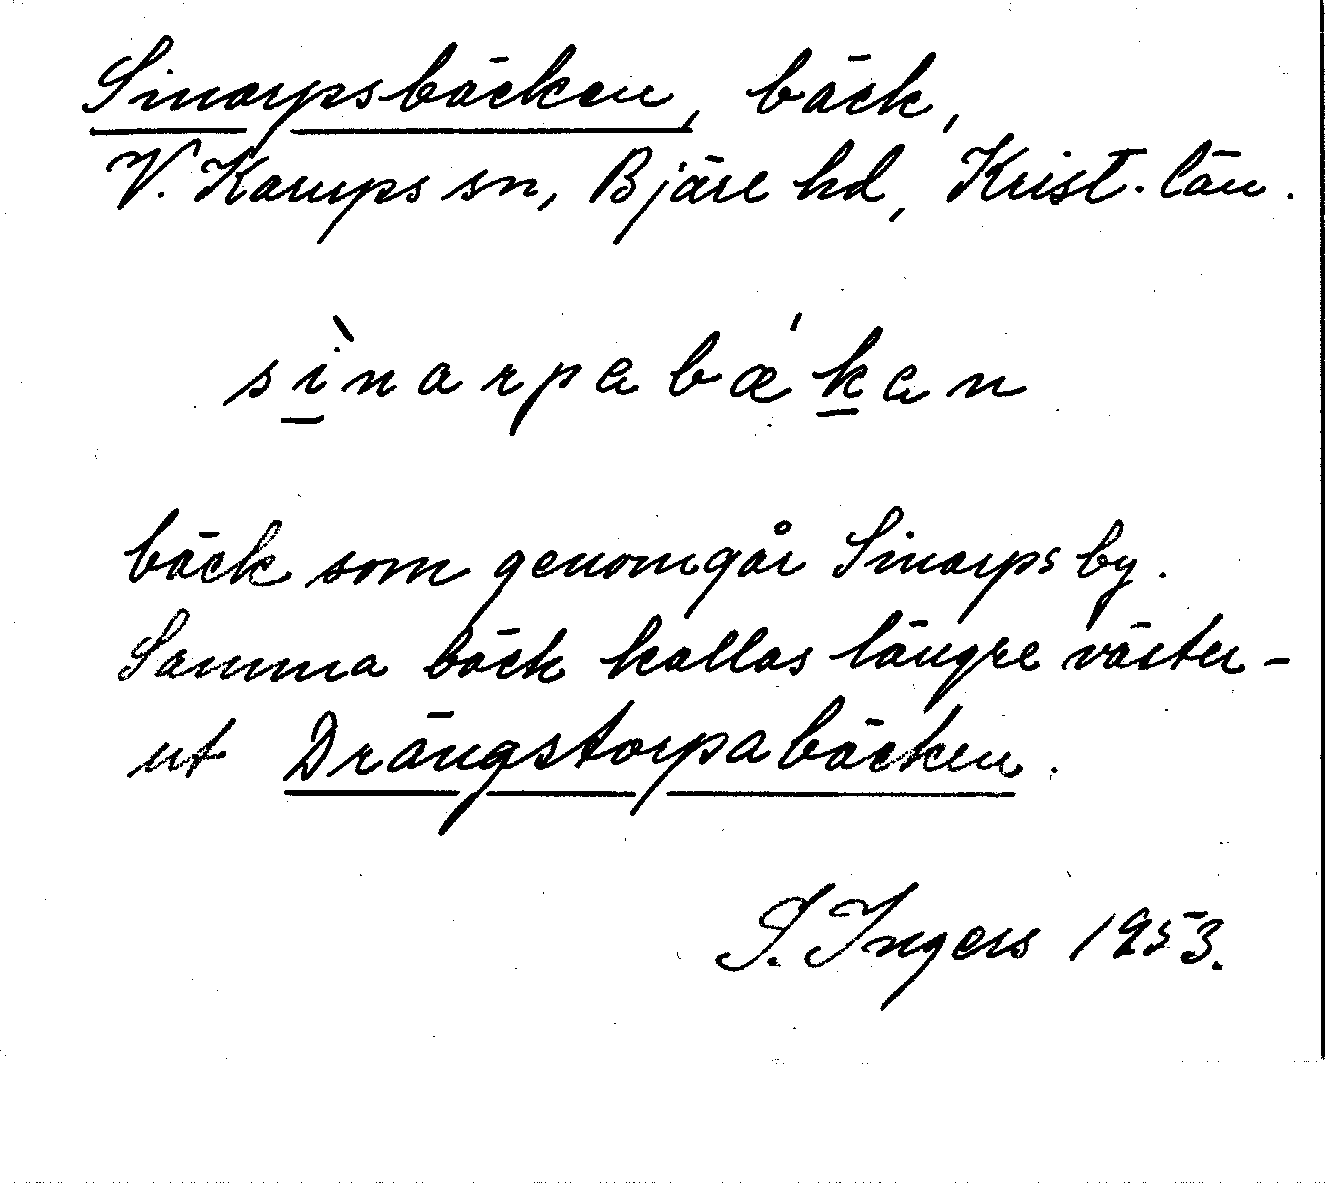 Sinarpsbäcken, bäck,
V. Karups sn, Bjäre hd, Krist. län.
sìnarpabækan
bäck som genomgår Sinarps by.
Samma bäck kallas längre väster-
ut Drängstorpabäcken.
I. Ingers 1953.